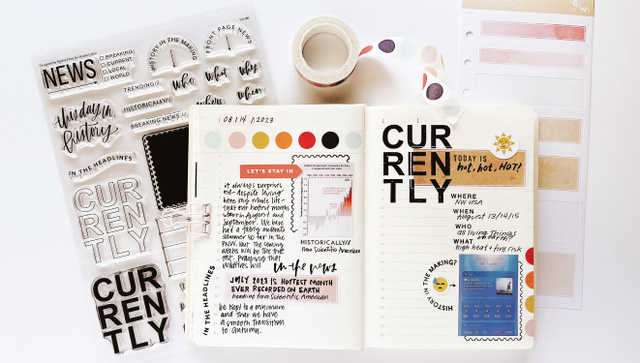 NEWS
BREAKING
CURRENT
LOCAL
WORLD
HISTORY IN THE MAKING
FRONT PAGE NEWS
TRENDING//
who
what
why
HISTORICALLY//
this day in
history
BREAKING NEWS
IN THE HEADLINES
CUR
REN
TLY
CUR
REN
TLY
08/14/2023
LET'S STAY IN
it always surprises
me - despite living
here my whole life -
that our hottest month
September. We have
had a fairly moderate
summer so far in the
PNW, but the coming
weeks will be the
Praying that
wildfires will
HISTORICALLY//
from Scientific American
in the news
JULY 2023 IS HOTTEST MONTH
EVER RECORDED ON EARTH
headline from Scientific American
IN THE HEADLINES
be kept to a minimum
and that we have
a smooth transition
to autumn.
CUR
REN
TLY
TODAY IS
hot, hot, HOT!
WHERE
NW USA
WHEN
August 13/14/15
WHO
all living things
WHAT
high heat + fire risk
HISTORY IN THE MAKING?
S/W